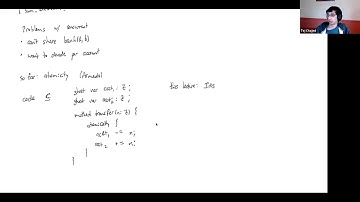 Problems w/ concurrent
• can't share bank(b, b)
• want to decide per account
so far: atomicity (Armada)
code ≤
ghost var acct₁ : ℤ ;
ghost var acct₂ : ℤ ;
method transfer(n: ℤ) {
atomically {
acct₁ -= n;
acct₂ += n;
}
}
this lecture: Iris
Tej Chajed